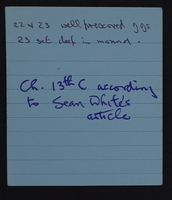 22 & 23 well preserved
23 set deep in mound.
Ch. 13th C according
to Sean White's
article